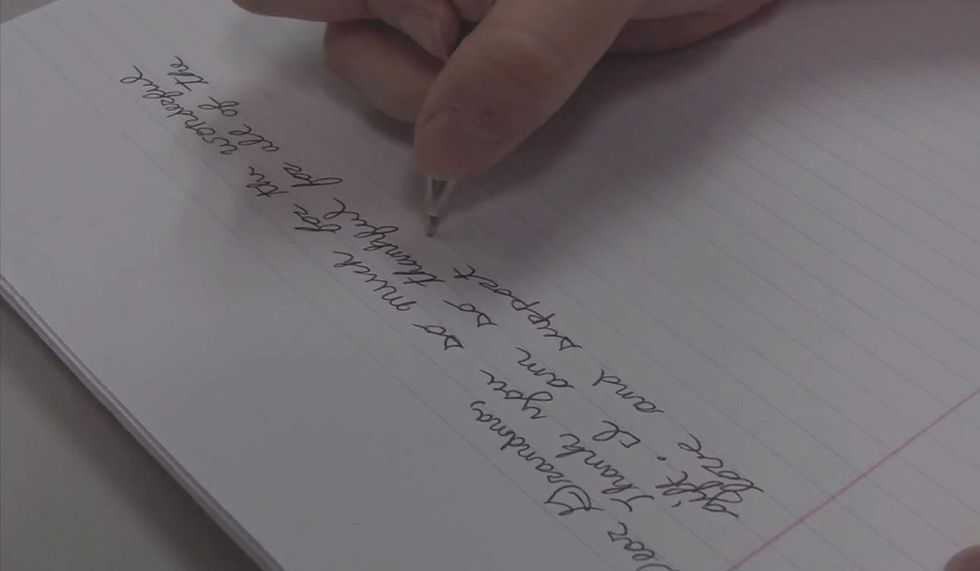 Dear Grandma,
Thank you so much for the wonderful
gift. I am so thankful for all of the
love and support